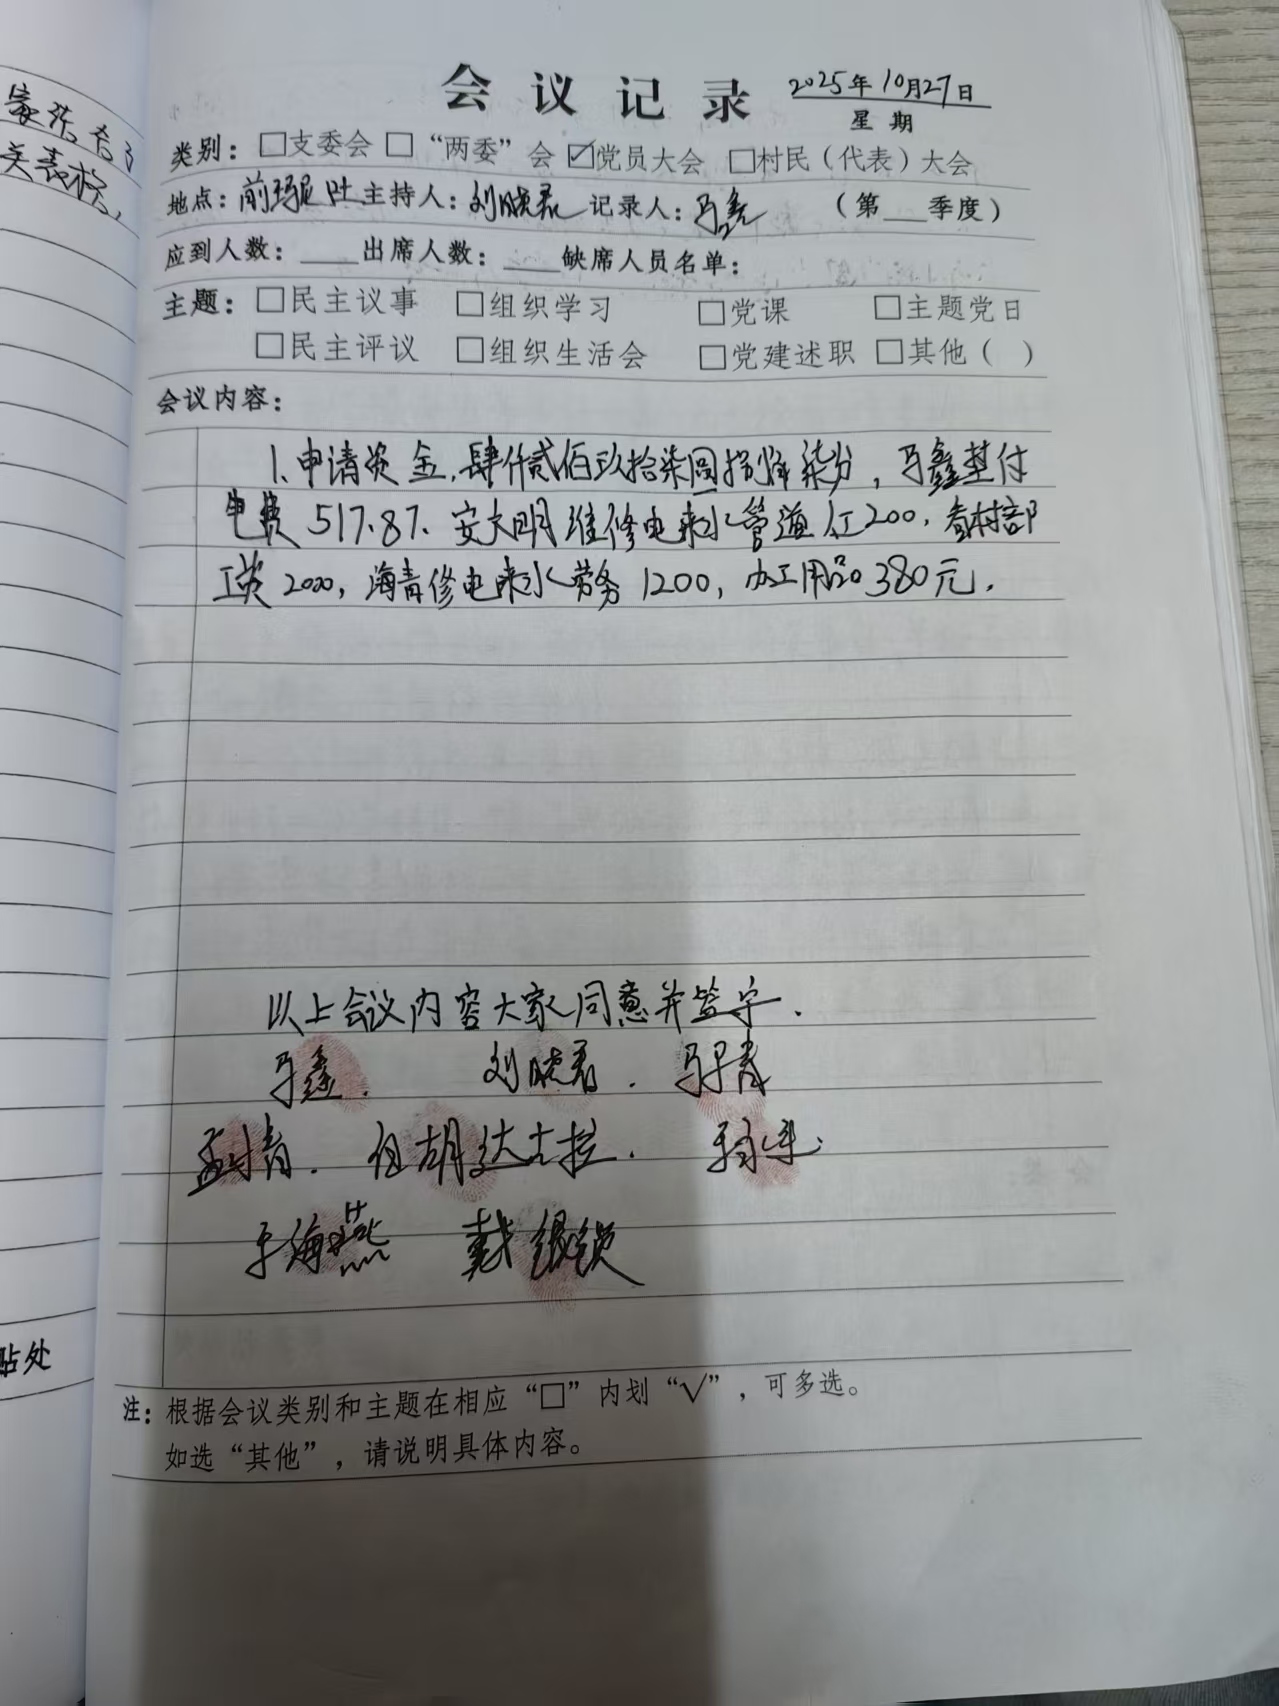 会议记录 2025年10月27日
星期
类别：□支委会 □“两委”会 ☑党员大会 □村民（代表）大会
地点：前玛尼吐 主持人：刘晓君 记录人：马鑫 （第___季度）
应到人数：____出席人数：____缺席人员名单：
主题：□民主议事 □组织学习 □党课 □主题党日
□民主评议 □组织生活会 □党建述职 □其他（ ）
会议内容：
1.申请资金，肆仟贰佰玖拾柒圆捌角柒分，马鑫垫付
电费517.87．安大明维修自来水管道红200，看村部
工资2000，海青修自来水劳务1200，办工用品380元．
以上会议内容大家同意并签字．
马鑫． 刘晓君． 马早青
孟青． 达古拉．
于海燕 戴银锁
注：根据会议类别和主题在相应“□”内划“√”，可多选。
如选“其他”，请说明具体内容。
贴处